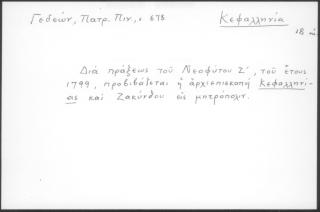 Γεδεών, Πατρ. Πιν., 675
Κεφαλληνία
18
Διὰ πράξεως τοῦ Νεοφύτου Ζ΄, τοῦ ἔτους
1799, προβιβάζεται ἡ ἀρχιεπισκοπή Κεφαλληνί-
ας καὶ Ζακύνθου εἰς μητρόπολιν.